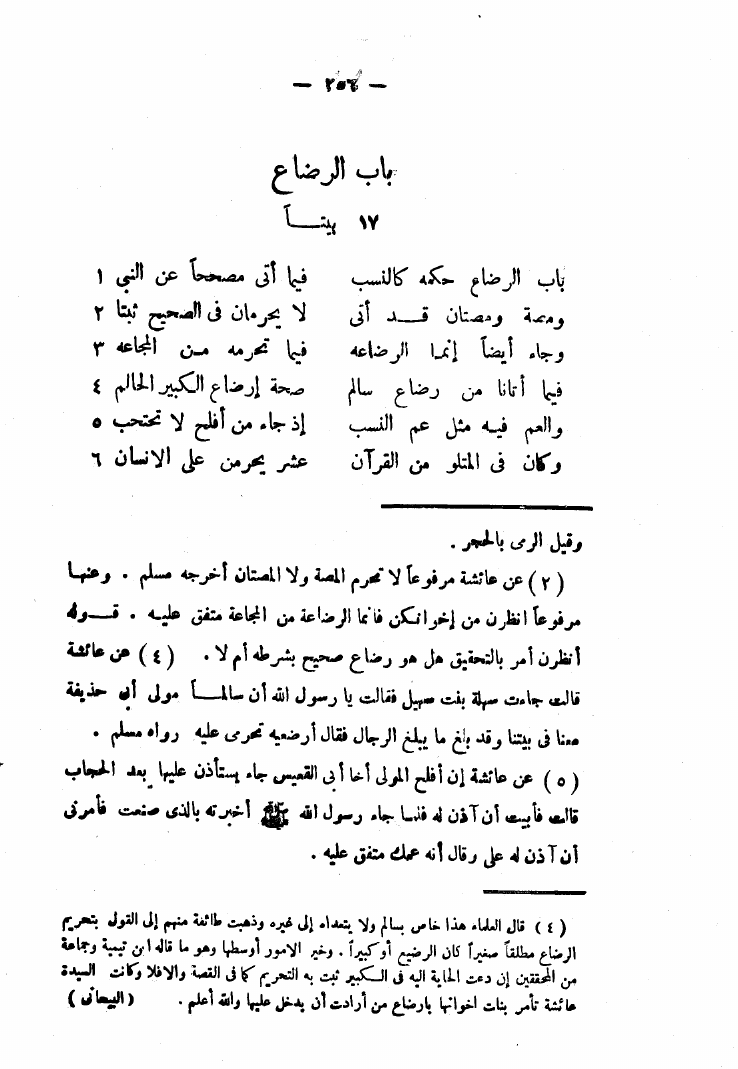 — ٢٥٦ —
باب الرضاع
١٧ بيتــاً
باب الرضاع حكمه كالنسب فيما أتى مصححاً عن النبي ١
ومصة ومصتان قــد أتى لا يحرمان فى الصحيح ثبتا ٢
وجاء أيضاً إنمــا الرضاعه فيما تحرمه مــن المجاعه ٣
فيما أتانا من رضاع سالم صحة إرضاع الكبير الحالم ٤
والعم فيــه مثل عم النسب إذ جاء من أفلح لا تحتجب ٥
وكان فى المتلو من القرآن عشر يحرمن على الانسان ٦
وقيل الرمى بالحجر .
(٢) عن عائشة مرفوعاً لا تحرم المصة ولا المصتان أخرجه مسلم . وعنهــا
مرفوعاً انظرن من إخوانكن فانما الرضاعة من المجاعة متفق عليــه . قــوله
أنظرن أمر بالتحقيق هل هو رضاع صحيح بشرطه أم لا . (٤) عن عائشة
قالت جاءت سهلة بنت سهيل فقالت يا رسول الله أن سالمــاً مولى أبى حذيفة
معنا فى بيتنا وقد بلغ ما يبلغ الرجال فقال أرضعيه تحرمى عليه رواه مسلم .
(٥) عن عائشة إن أفلح المولى أخا أبى القعيس جاء يستأذن عليها بعد الحجاب
قالت فأبيت أن آذن له فلمــا جاء رسول الله ﷺ أخبرته بالذى صنعت فأمرنى
أن آذن له على وقال أنه عمك متفق عليه .
(٤) قال العلماء هذا خاص بسالم ولا يتعداه إلى غيره وذهبت طائفة منهم إلى القول بتحريم
الرضاع مطلقاً صغيراً كان الرضيع أو كبيراً . وخير الامور أوسطها وهو ما قاله ابن تيمية وجماعة
من المحققين إن دعت الحاية اليه فى الكبير ثبت به التحريم كما فى القصة والافلا وكانت السيدة
عائشة تأمر بنات اخواتها بارضاع من أرادت أن يدخل عليها والله أعلم . (البيحانى)